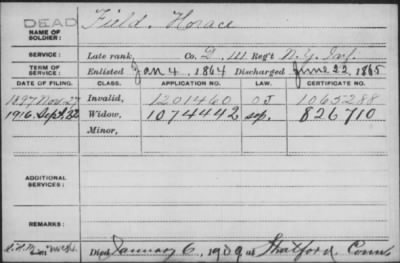 DEAD
NAME OF SOLDIER: Field, Horace
SERVICE: Late rank, Co. D, 111 Reg't N.Y. Inf.
TERM OF SERVICE: Enlisted Jan 4, 1864 Discharged June 22, 1865
DATE OF FILING. CLASS. APPLICATION NO. LAW. CERTIFICATE NO.
1897 Nov. 27 Invalid, 1201460 1065288
1916 Sept. Widow, 1074442 Sep. 826710
Minor,
ADDITIONAL SERVICES:
REMARKS:
Died January 6, 1909 at Stratford, Conn